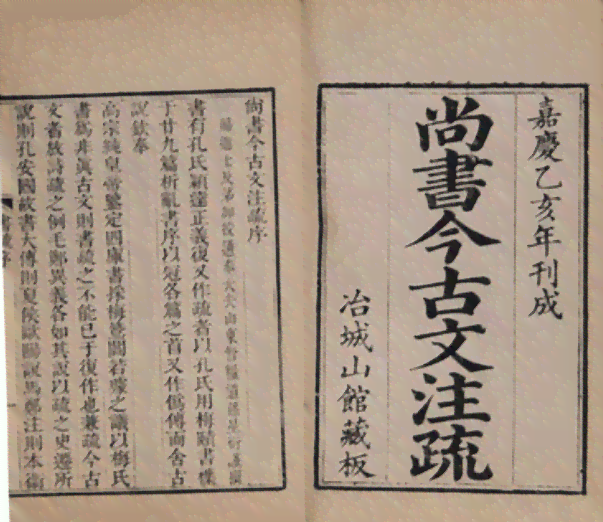 嘉慶乙亥年刊成
尚書今古文注疏
冶城山館藏板
尚書今古文注疏序
書有孔氏穎達正義復又作疏者以孔氏用梅賾書襍
于廿九篇析亂書序以冠各篇之首又作僞傳而舍古
說欽奉
高宗純皇帝鑒定四庫書採梅鷟閻若璩之議以梅氏
書爲非眞古文則書疏之不能已于復作也兼疏今古
文者放詩疏之例毛鄭異義各如其說以疏之史遷所
說則孔安國故書大傳則夏侯歐陽說馬鄭注則本衛